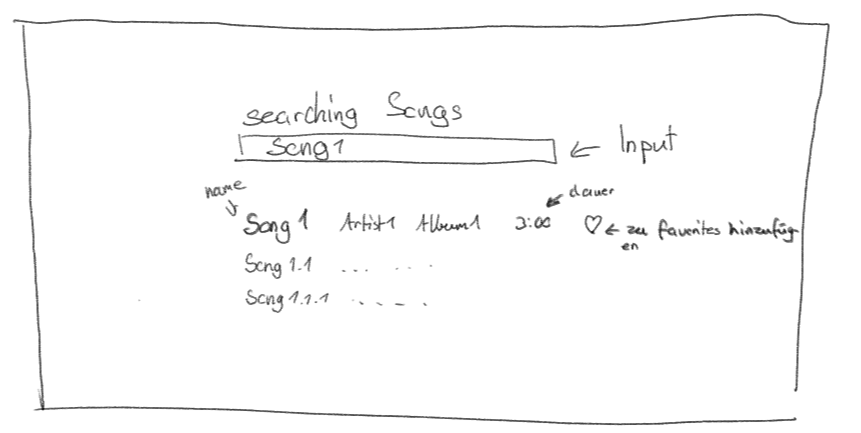 searching Songs
Song1
← Input
name
dauer
Song 1 Artist1 Album1 3:00 ♡ ← zu favorites hinzufüg
en
Song 1.1 ... ...
Song 1.1.1 .... .